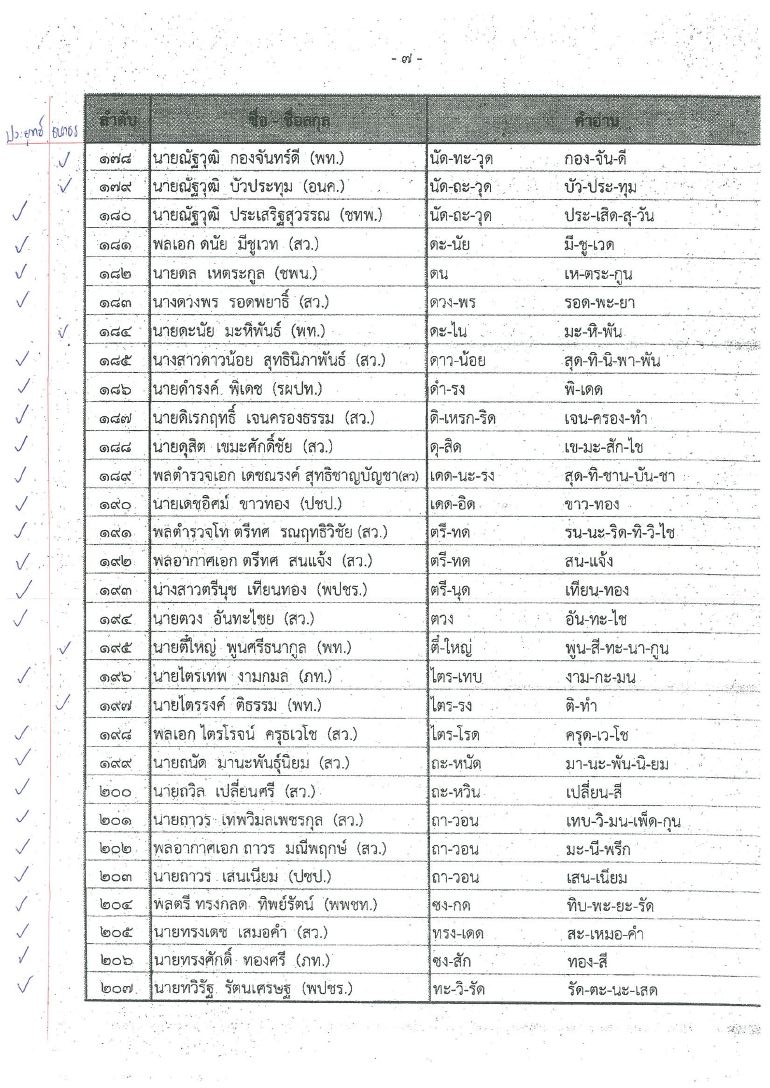 - ๗ -
ประยุทธ์ ธนาธร ลำดับ ชื่อ - ชื่อสกุล คำอ่าน
✓ ๑๗๘ นายณัฐวุฒิ กองจันทร์ดี (พท.) นัด-ทะ-วุด กอง-จัน-ดี
✓ ๑๗๙ นายณัฐวุฒิ บัวประทุม (อนค.) นัด-ถะ-วุด บัว-ประ-ทุม
✓ ๑๘๐ นายณัฐวุฒิ ประเสริฐสุวรรณ (ชทพ.) นัด-ถะ-วุด ประ-เสิด-สุ-วัน
✓ ๑๘๑ พลเอก ดนัย มีชูเวท (สว.) ดะ-นัย มี-ชู-เวด
✓ ๑๘๒ นายดล เหตระกูล (ชพน.) ดน เห-ตระ-กูน
✓ ๑๘๓ นางดวงพร รอดพยาธิ์ (สว.) ดวง-พร รอด-พะ-ยา
✓ ๑๘๔ นายดะนัย มะหิพันธ์ (พท.) ดะ-ไน มะ-หิ-พัน
✓ ๑๘๕ นางสาวดาวน้อย สุทธินิภาพันธ์ (สว.) ดาว-น้อย สุด-ทิ-นิ-พา-พัน
✓ ๑๘๖ นายดำรงค์ พิเดช (รผปท.) ดำ-รง พิ-เดด
✓ ๑๘๗ นายดิเรกฤทธิ์ เจนครองธรรม (สว.) ดิ-เหรก-ริด เจน-ครอง-ทำ
✓ ๑๘๘ นายดุสิต เขมะศักดิ์ชัย (สว.) ดุ-สิด เข-มะ-สัก-ไช
✓ ๑๘๙ พลตำรวจเอก เดชณรงค์ สุทธิชาญบัญชา(สว) เดด-นะ-รง สุด-ทิ-ชาน-บัน-ชา
✓ ๑๙๐ นายเดชอิศม์ ขาวทอง (ปชป.) เดด-อิด ขาว-ทอง
✓ ๑๙๑ พลตำรวจโท ตรีทศ รณฤทธิวิชัย (สว.) ตรี-ทด รน-นะ-ริด-ทิ-วิ-ไช
✓ ๑๙๒ พลอากาศเอก ตรีทศ สนแจ้ง (สว.) ตรี-ทด สน-แจ้ง
✓ ๑๙๓ นางสาวตรีนุช เทียนทอง (พปชร.) ตรี-นุด เทียน-ทอง
✓ ๑๙๔ นายตวง อันทะไชย (สว.) ตวง อัน-ทะ-ไช
✓ ๑๙๕ นายตี๋ใหญ่ พูนศรีธนากูล (พท.) ตี๋-ใหญ่ พูน-สี-ทะ-นา-กูน
✓ ๑๙๖ นายไตรเทพ งามกมล (ภท.) ไตร-เทบ งาม-กะ-มน
✓ ๑๙๗ นายไตรรงค์ ติธรรม (พท.) ไตร-รง ติ-ทำ
✓ ๑๙๘ พลเอก ไตรโรจน์ ครุธเวโช (สว.) ไตร-โรด ครุด-เว-โช
✓ ๑๙๙ นายถนัด มานะพันธุ์นิยม (สว.) ถะ-หนัด มา-นะ-พัน-นิ-ยม
✓ ๒๐๐ นายถวิล เปลี่ยนศรี (สว.) ถะ-หวิน เปลี่ยน-สี
✓ ๒๐๑ นายถาวร เทพวิมลเพชรกุล (สว.) ถา-วอน เทบ-วิ-มน-เพ็ด-กุน
✓ ๒๐๒ พลอากาศเอก ถาวร มณีพฤกษ์ (สว.) ถา-วอน มะ-นี-พรึก
✓ ๒๐๓ นายถาวร เสนเนียม (ปชป.) ถา-วอน เสน-เนียม
✓ ๒๐๔ พลตรี ทรงกลด ทิพย์รัตน์ (พพชท.) ซง-กด ทิบ-พะ-ยะ-รัด
✓ ๒๐๕ นายทรงเดช เสมอคำ (สว.) ทรง-เดด สะ-เหมอ-คำ
✓ ๒๐๖ นายทรงศักดิ์ ทองศรี (ภท.) ซง-สัก ทอง-สี
✓ ๒๐๗ นายทวิรัฐ รัตนเศรษฐ (พปชร.) ทะ-วิ-รัด รัด-ตะ-นะ-เสด